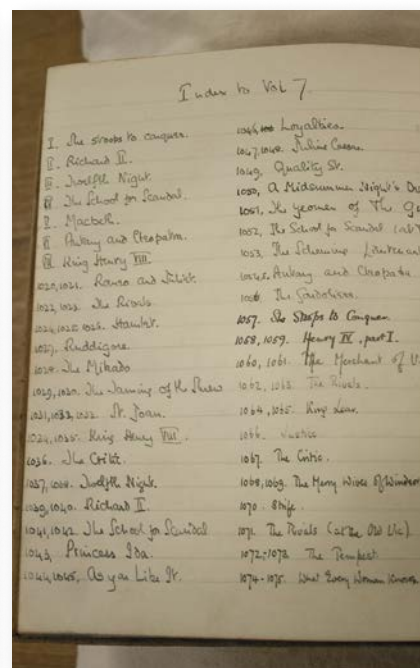 Index to Vol 7
I. She stoops to conquer.
II. Richard II.
III. Twelfth Night.
IV The School for Scandal.
V. Macbeth.
VI Antony and Cleopatra.
VII King Henry VIII.
1020,1021. Romeo and Juliet.
1022, 1023. The Rivals
Hamlet.
1027. Ruddigore.
1028. The Mikado
1029,1030. The Taming of the Shrew
St. Joan.
1034,1035. King Henry VIII.
1036. The Critic.
1037, 1038. Twelfth Night.
1039,1040. Richard II.
1041,1042. The School for Scandal
1043, Princess Ida.
1044,1045, As you Like It.
1046, Loyalties.
1047,1048. Julius Caesar.
1049. Quality St.
1050, A Midsummer Night's
1051, The Yeomen of The
1052, The School for Scandal (at
1053, The Scheming Lieutenant
Antony and Cleopatra
1056. The Gondoliers.
1057. She Stoops to Conquer
1058, 1059. Henry IV, part I.
1060, 1061. The Merchant of
1062, 1063. The Rivals.
1064, 1065. King Lear.
1066. Justice
1067. The Critic.
1068,1069. The Merry Wives of Windsor
1070. Strife
1071. The Rivals (at the Old Vic).
1072-1073. The Tempest
1074-1075. What Every Woman Knows